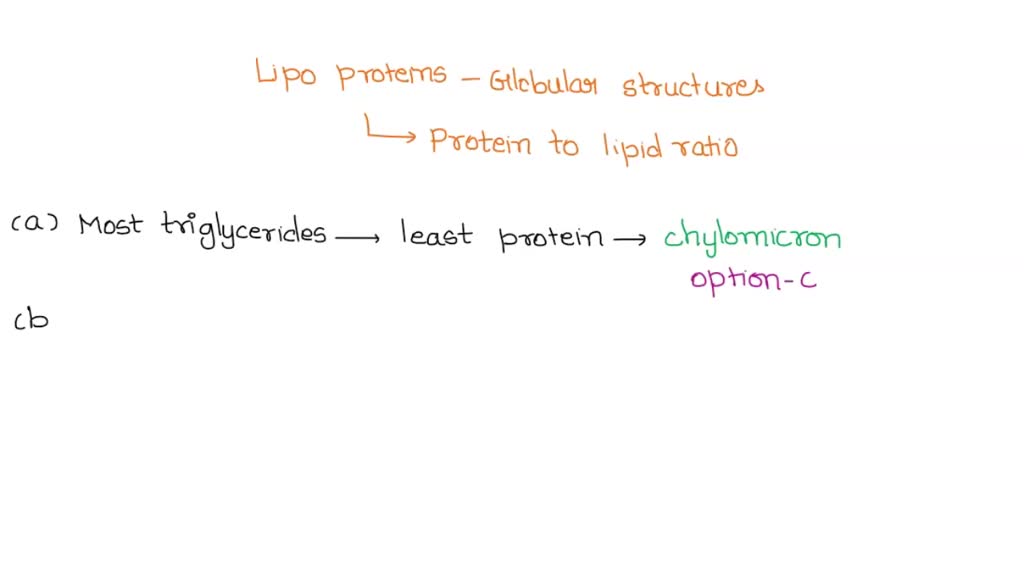 Lipo proteins - Globular structures
↳ Protein to lipid ratio
(a) Most triglycerides → least protein → chylomicron
option-c
(b